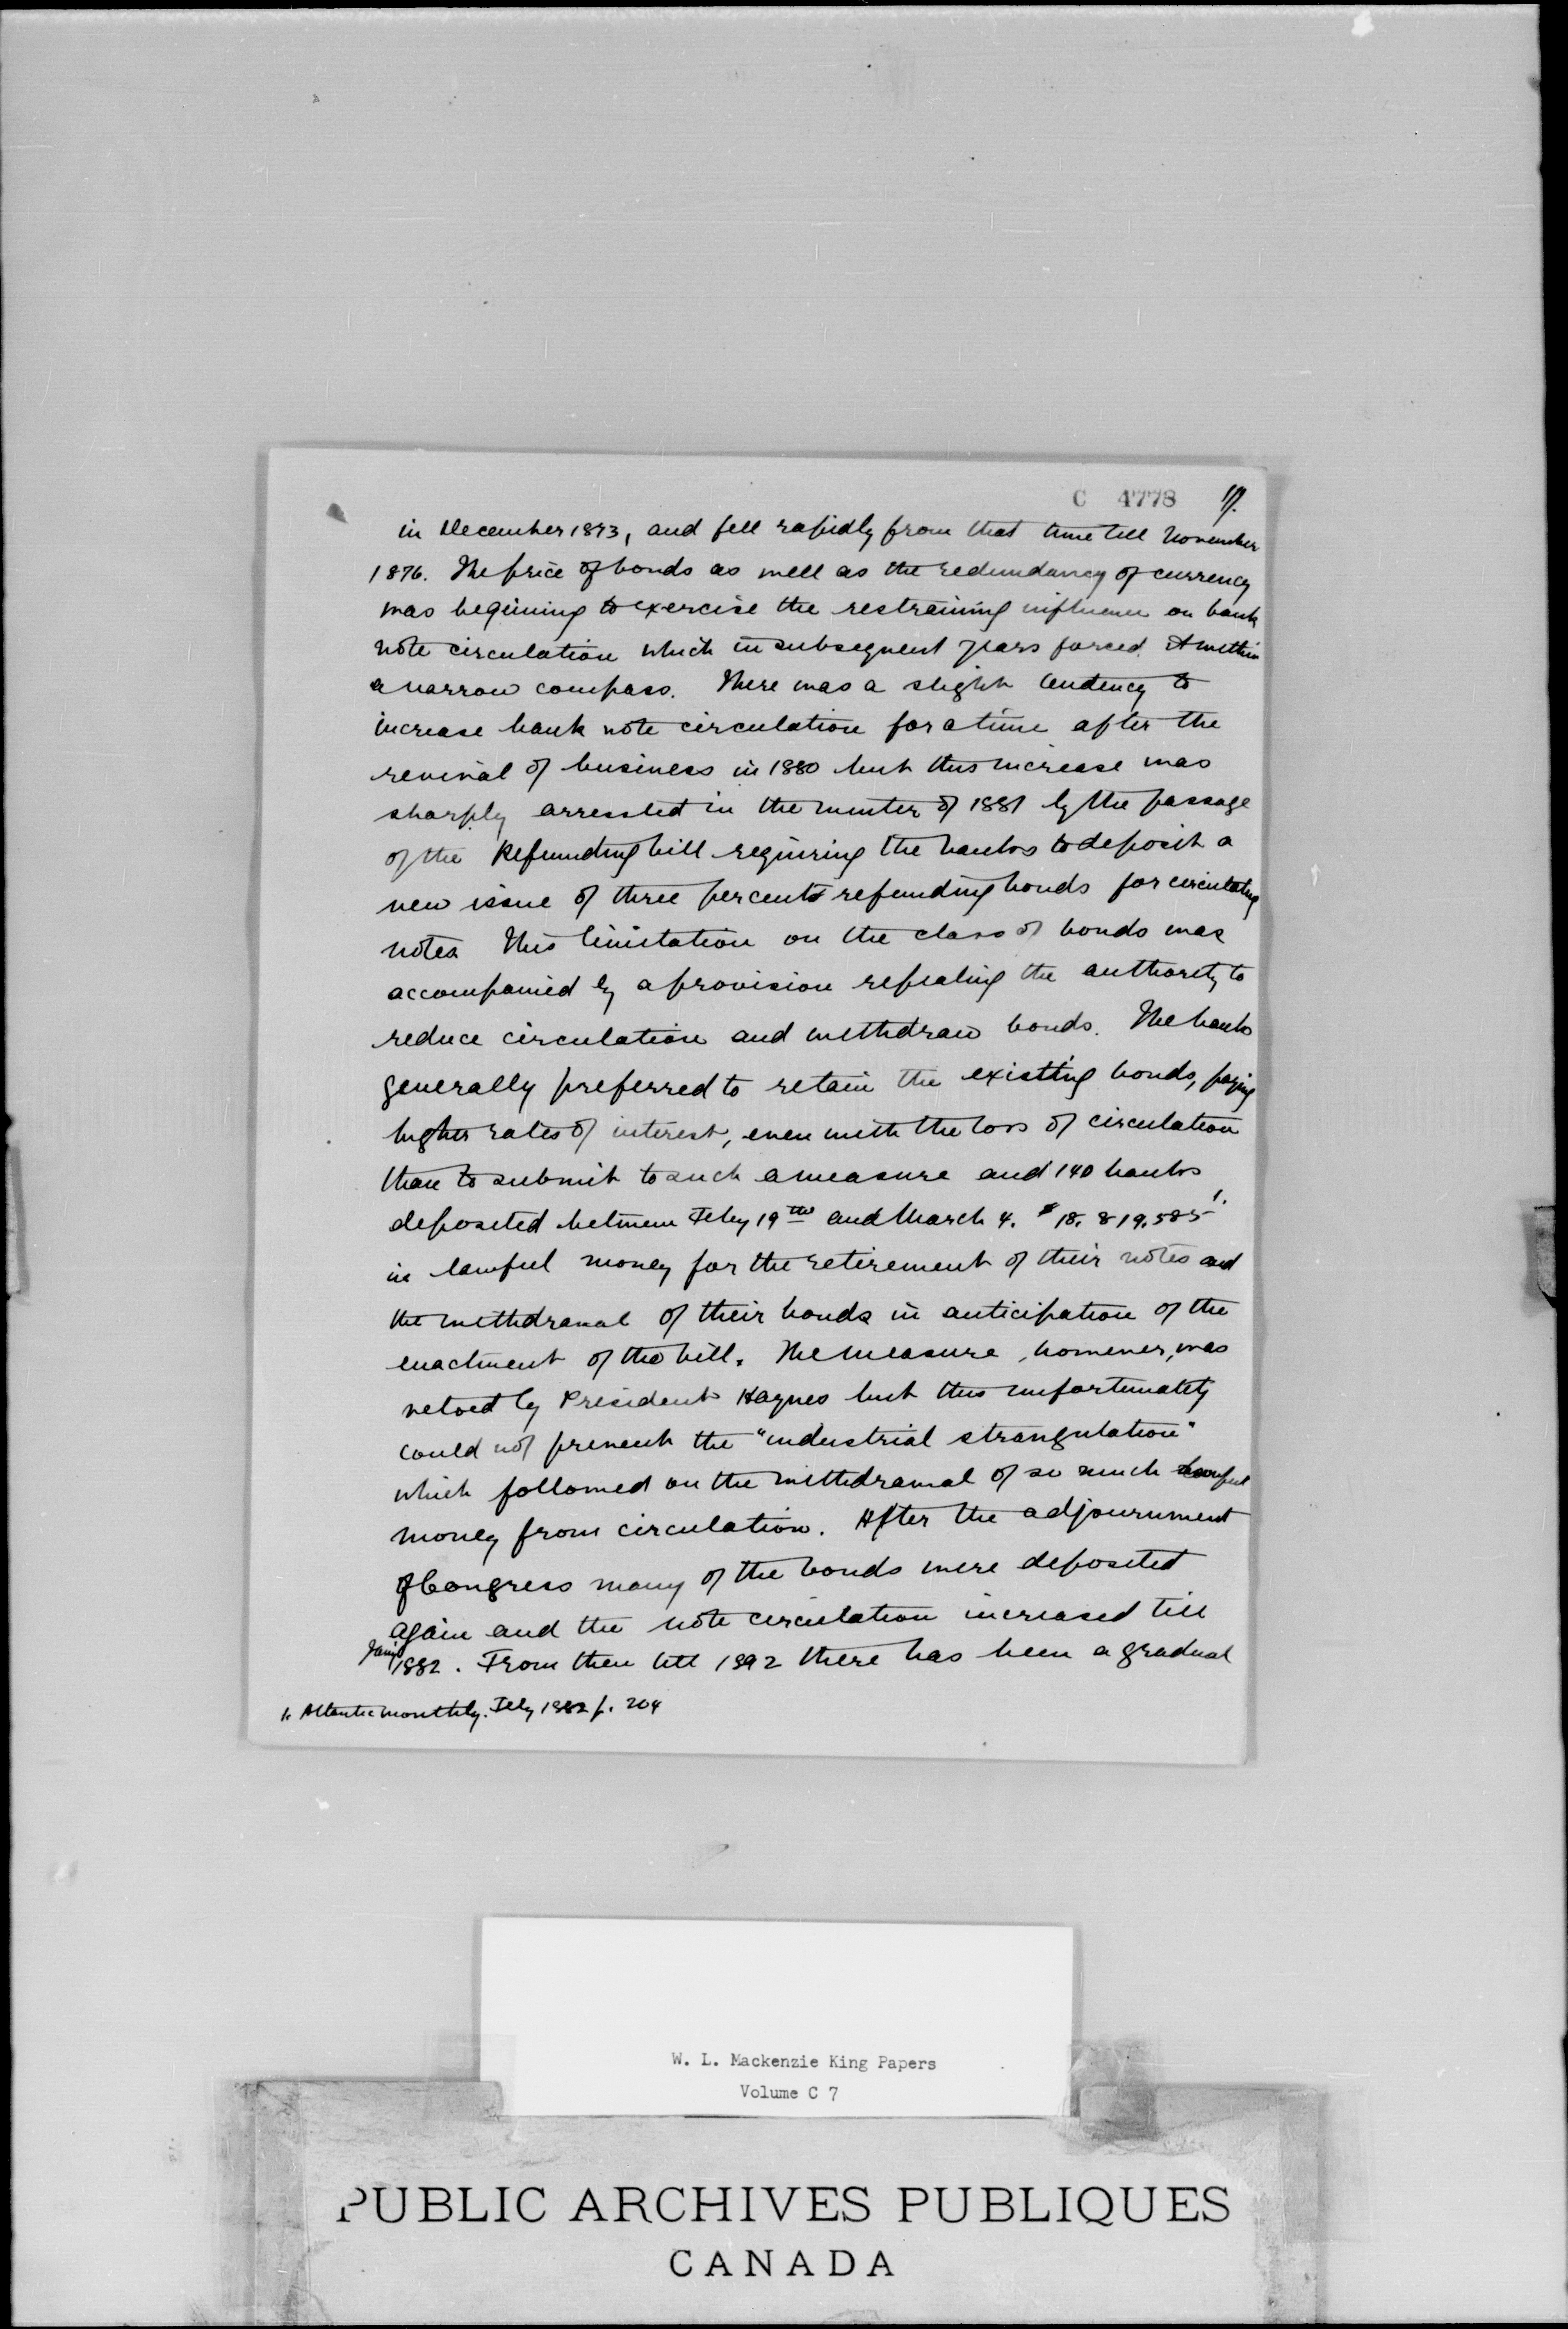 C 4778 17.
in December 1873, and fell rapidly from that time till November
1876. The price of bonds as well as the redundancy of currency
was beginning to exercise the restraining influence on bank
note circulation which in subsequent years forced it within
a narrow compass. There was a slight tendency to
increase bank note circulation for a time after the
revival of business in 1880 but this increase was
sharply arrested in the winter of 1881 by the passage
of the Refunding bill requiring the banks to deposit a
new issue of three per cents refunding bonds for circulating
notes. This limitation on the class of bonds was
accompanied by a provision repealing the authority to
reduce circulation and withdraw bonds. The banks
generally preferred to retain the existing bonds, paying
higher rates of interest, even with the loss of circulation
than to submit to such a measure and 140 banks
deposited between Feby 19th and March 4. $18.819.585 1.
in lawful money for the retirement of their notes and
the withdrawal of their bonds in anticipation of the
enactment of the bill. The measure, however, was
vetoed by President Haynes but this unfortunately
could not prevent the "industrial strangulation"
which followed on the withdrawal of so much lawful
money from circulation. After the adjournment
of Congress many of the bonds were deposited
again and the note circulation increased till
1882. From then till 1892 there has been a gradual
1. Atlantic monthly. Feby 1882 p. 204
W. L. Mackenzie King Papers
Volume C 7
PUBLIC ARCHIVES PUBLIQUES
CANADA